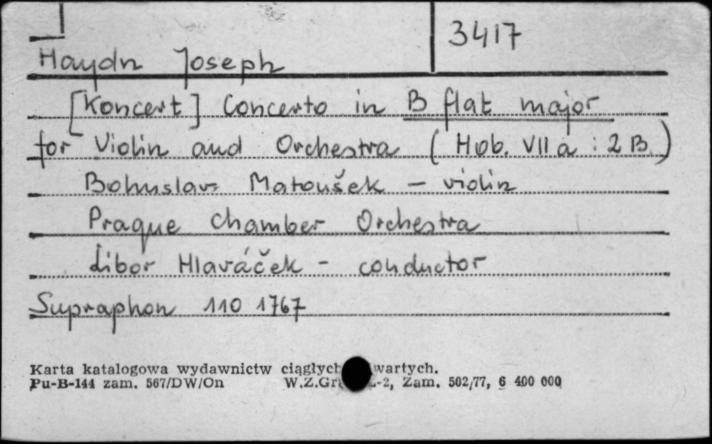 3417
Haydn Joseph
[Koncert] Concerto in B flat major
for Violin and Orchestra (Hob. VII a : 2 B.)
Bohuslav Matoušek – violin
Prague Chamber Orchestra
Libor Hlaváček - conductor
Supraphon 110 1767
Karta katalogowa wydawnictw ciągłych wartych.
Pu-B-144 zam. 567/DW/On W.Z.Gr -2, Zam. 502/77, 6 400 000